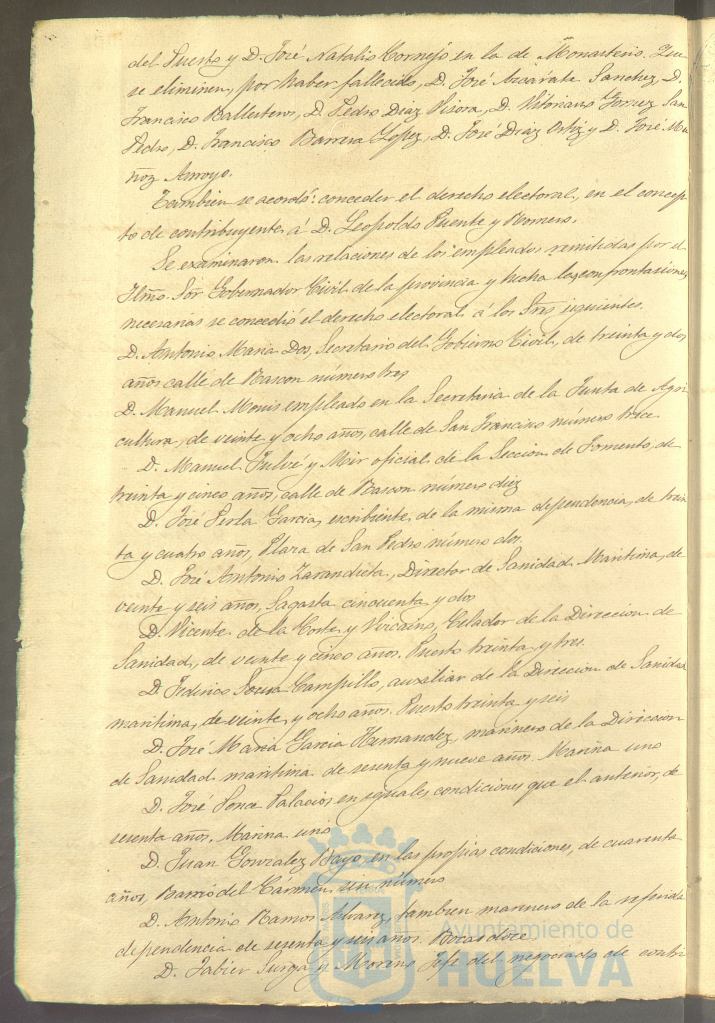 del Puerto y D. José Natalio Cornejo en la de Monasterio. Que
se eliminen, por haber fallecido, D. José Azcárate Sanchez, D.
Francisco Ballesteros, D. Pedro Diaz D. Vitoriano Gomez San
Pedro, D. Francisco Barrera Lopez, D. José Diaz Ortiz y D. José Mu
ñoz Arroyo.
Tambien se acordó: conceder el derecho electoral, en el concep
to de contribuyente á D. Leopoldo Puente y Romero.
Se examinaron las relaciones de los empleados remitidas por el
Ilmo. Sor. Gobernador Civil de la provincia y hecha las confrontaciones
necesarias se concedió el derecho electoral á los Sres. siguientes.
D. Antonio Maria Dos, Secretario del Gobierno Civil, de treinta y dos
años calle de Rascon número tres
D. Manuel Monis empleado en la Secretaria de la Junta de Agri
cultura, de veinte y ocho años, calle de San Francisco número trece
D. Manuel y Mir oficial de la Seccion de Fomento, de
treinta y cinco años, calle de Rascon número diez
D. José Perla Garcia, escribiente, de la misma dependencia, de trein
ta y cuatro años, Plaza de San Pedro número dos.
D. José Antonio Zarandieta, Director de Sanidad Maritima, de
veinte y seis años, Sagasta cincuenta y dos
D. Vicente de la Corte y Vizcaino, Celador de la Direccion de
Sanidad, de veinte y cinco años. Puerto treinta y tres.
D. Federico Sousa Campillo, auxiliar de la Direccion de Sanidad
maritima, de veinte y ocho años. Puerto treinta y seis
D. José Maria Garcia Hernandez, marinero de la Direccion
de Sanidad maritima de sesenta y nueve años. Marina uno
D. José Ponce Palacios en yguales condiciones que el anterior, de
sesenta años. Marina uno
D. Juan Gonzalez Bayo, en las propias condiciones, de cuarenta
años, Barrio del Cármen sin número
D. Antonio Ramos Alvarez, tambien marinero de la referida
dependencia de sesenta y seis años. Bocas doce
D. Jabier y Moreno Jefe del negociado de contri
Ayuntamiento de
HUELVA